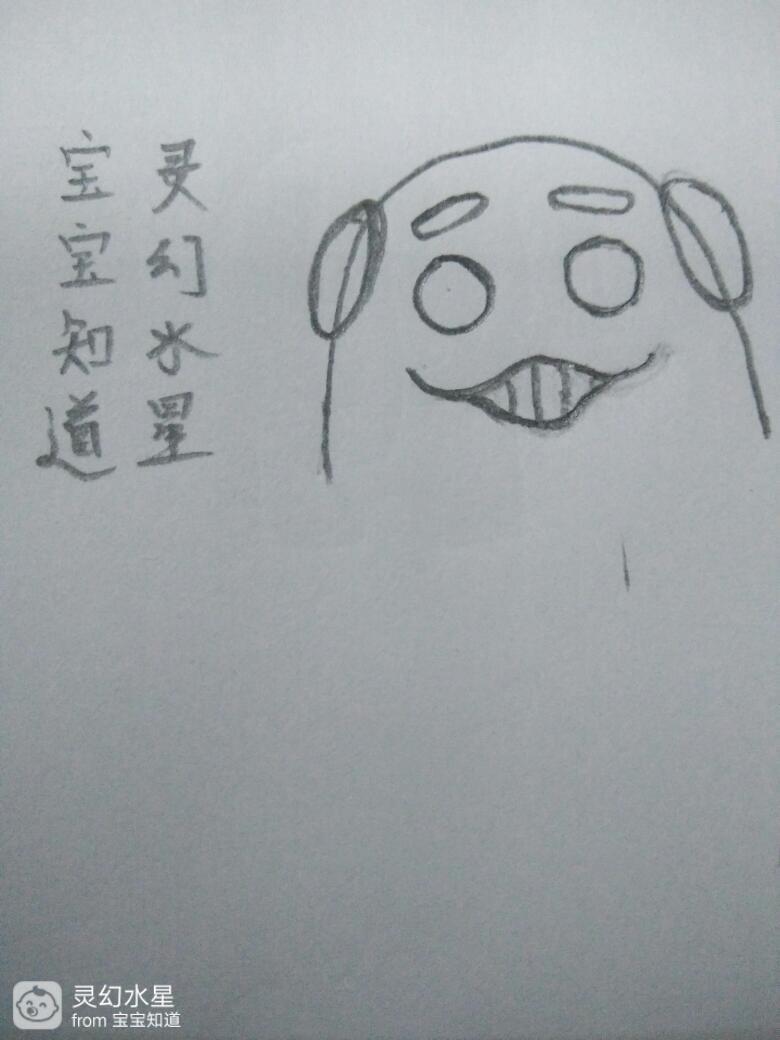 宝宝知道
灵幻水星
灵幻水星
from 宝宝知道